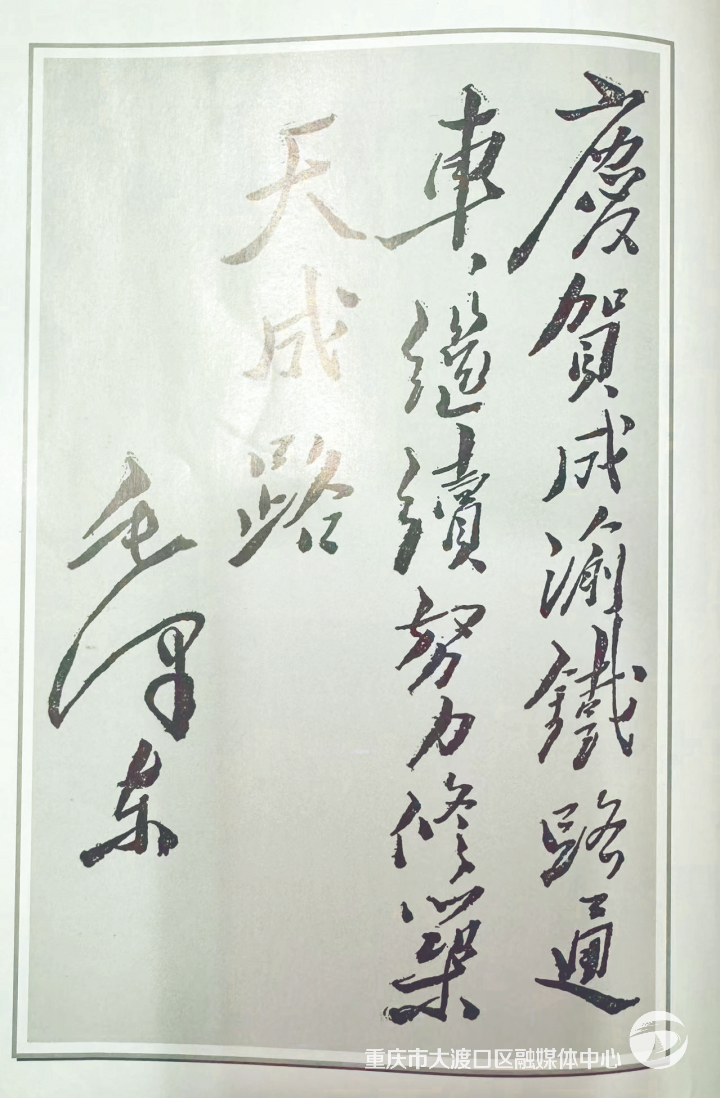 慶賀成渝鐵路通
車、繼續努力修築
天成路
毛澤东
重庆市大渡口区融媒体中心